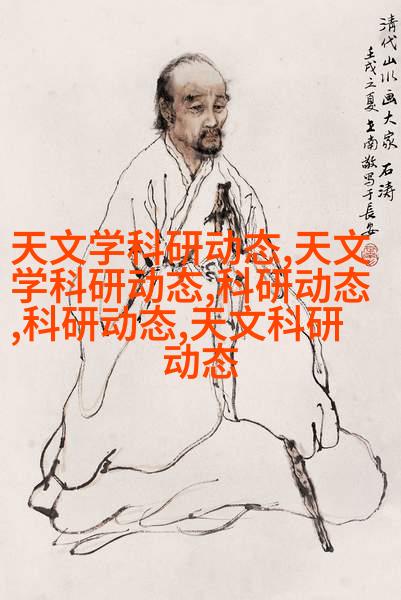 清代山水画大家 石涛
壬戌之夏 王南敬写于長安
天文学科研动态,天文
学科研动态,科研动态
,科研动态,天文科研
动态